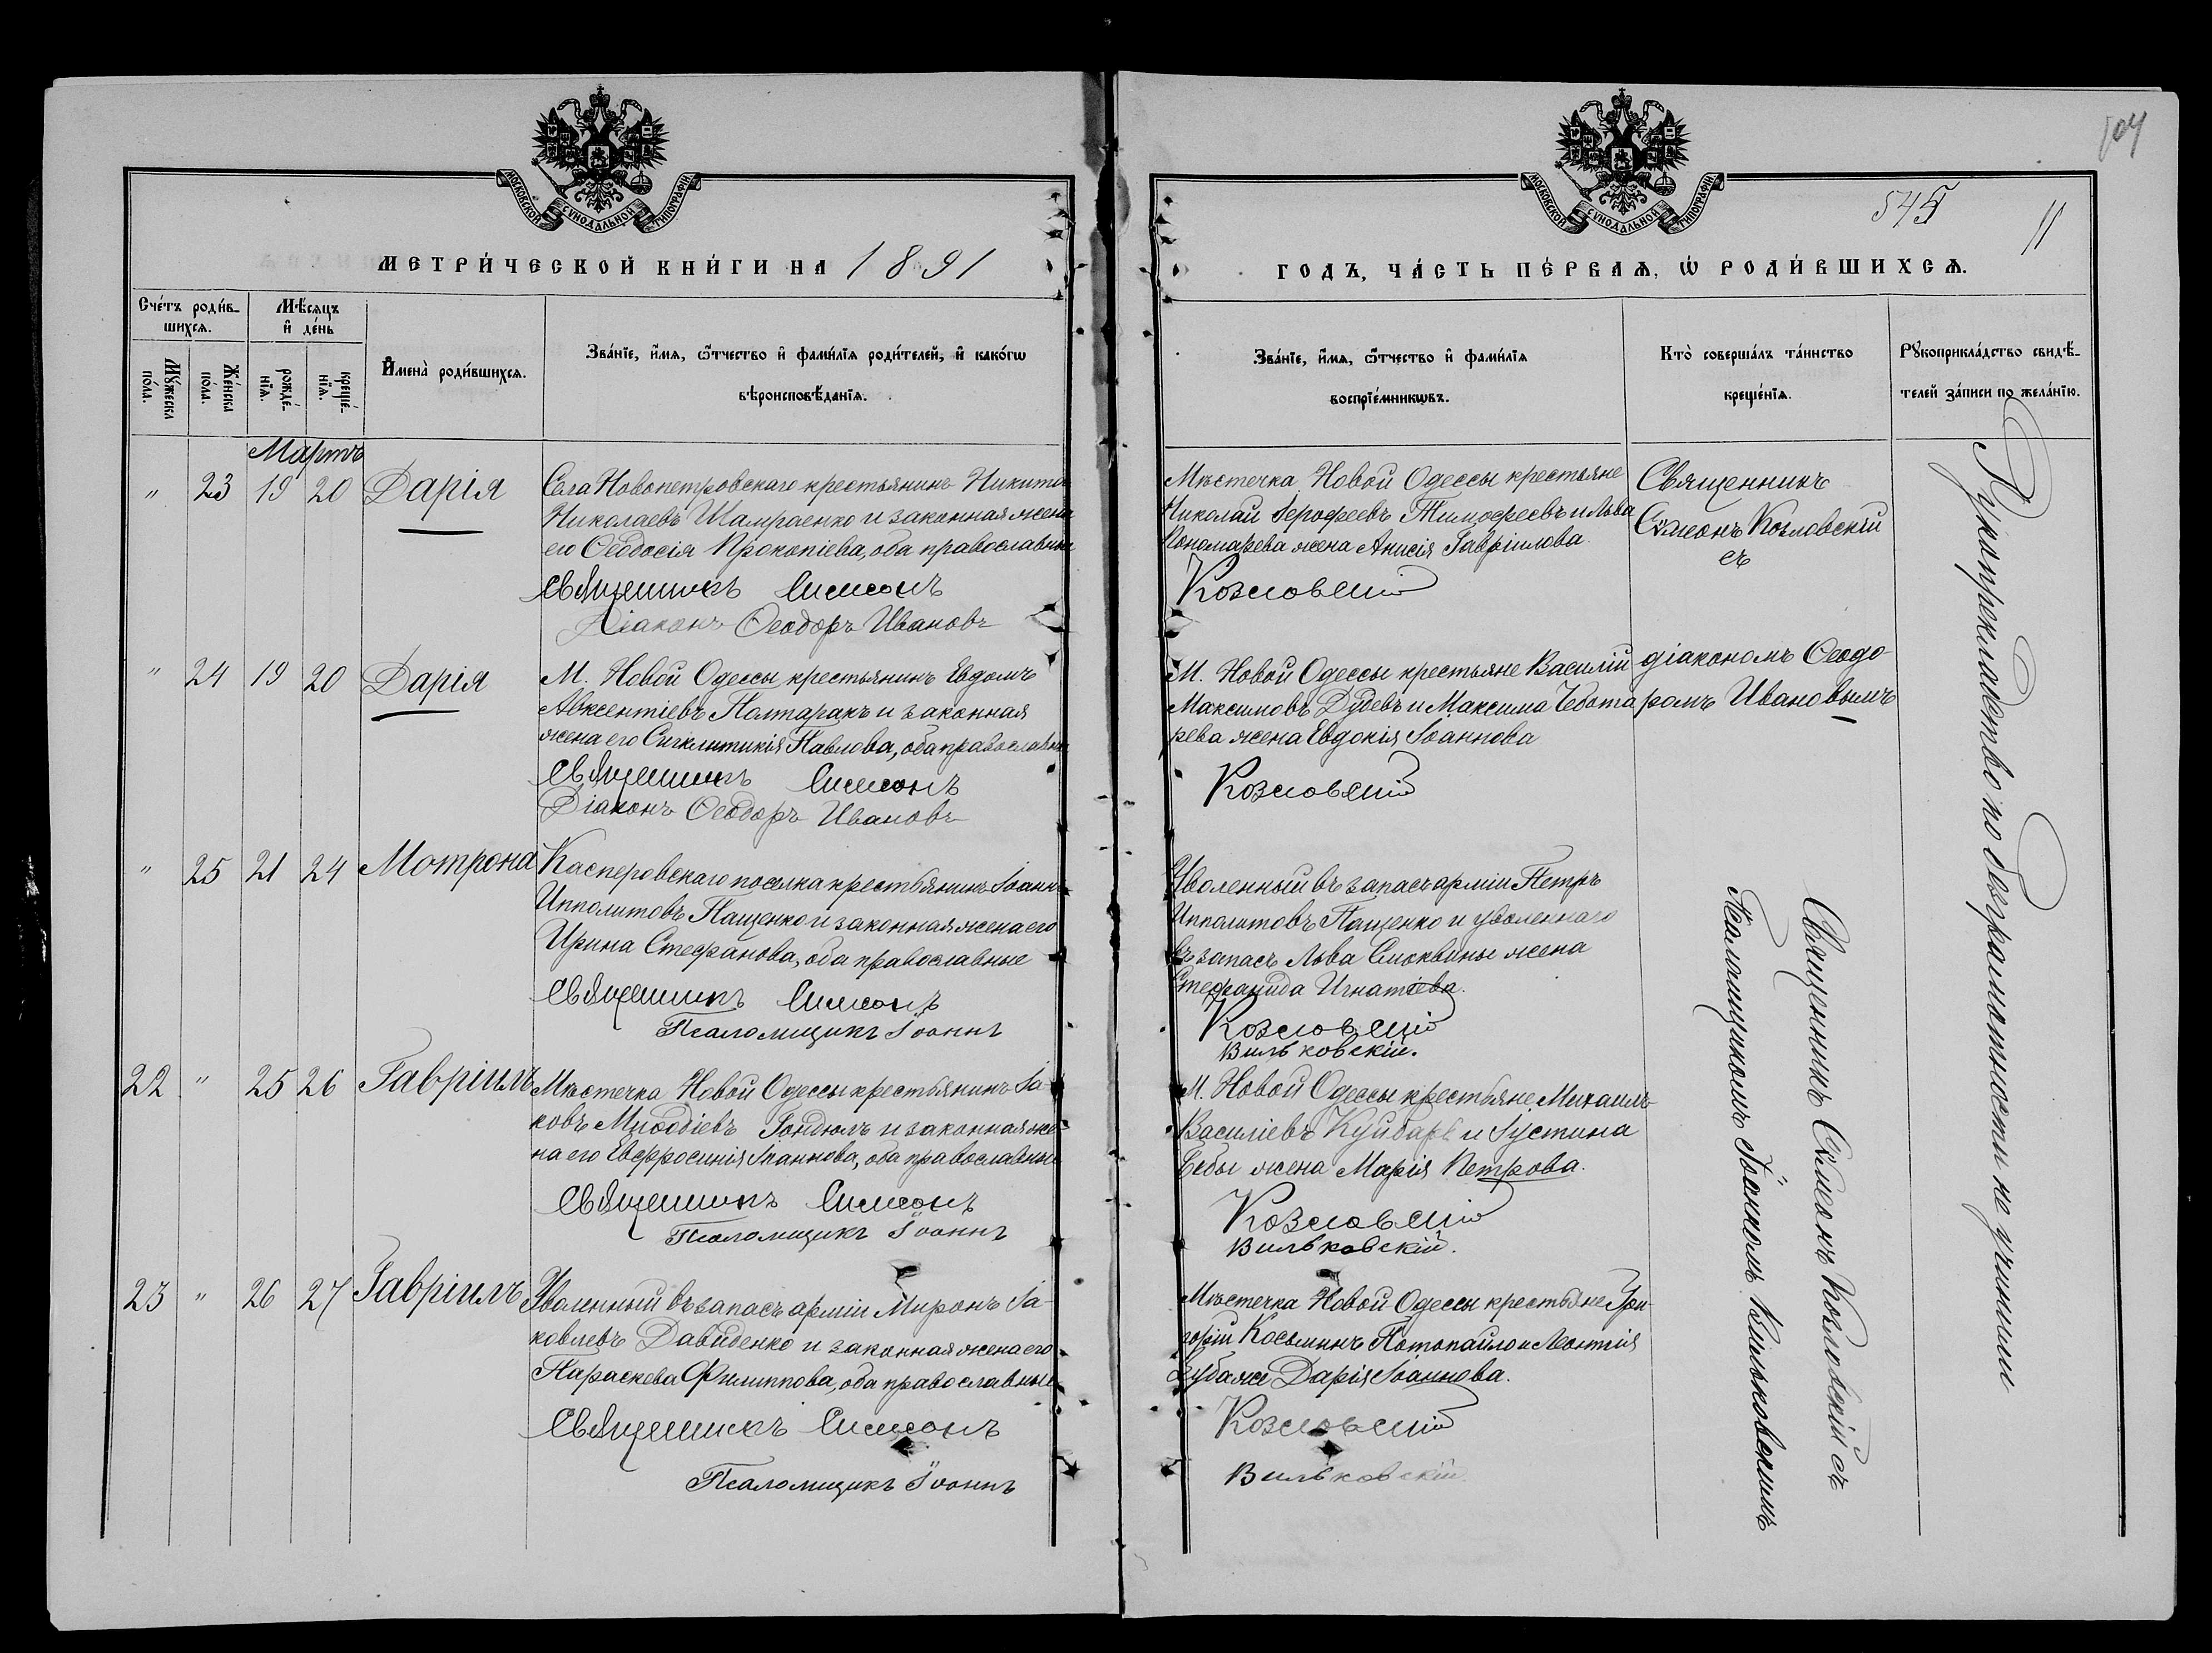 104
МОСКОВСКОЙ СУНОДАЛЬНОЙ ТИПОГРАФІИ
МОСКОВСКОЙ СУНОДАЛЬНОЙ ТИПОГРАФІИ
545
11
МЕТРИ́ЧЕСКОЙ КНИ́ГИ НА 1891
ГОДЪ, ЧА́СТЬ ПЕ́РВАѦ, Ѡ РОДИ́ВШИХСѦ.
Сче́тъ роди́в-
шихсѧ.
Мѣ́сѧцъ
и̂ де́нь
Му́жеска
по́ла.
Же́нска
по́ла.
рожде́-
нїѧ.
креще́-
нїѧ.
И̂мена̀ роди́вшихсѧ.
Зва́нїе, и̂мѧ, ѿтчество и̂ фами́лїѧ роди́телей, и̂ како́гѡ
вѣроисповѣ́данїѧ.
Зва́нїе, и̂мѧ, ѿтчество и̂ фами́лїѧ
воспрїе́мникѡвъ.
Кто̀ соверша́лъ та́инство
креще́нїѧ.
Рꙋкоприкла́дство свидѣ́-
телей за́писи по жела́нїю.
Мартъ
" 23 19 20 Дарія
Села Новопетровскаго крестьянинъ Никита
Николаевъ Шамраенко и законная жена
его Ѳеодосія Прокопіева, оба православные
Священникъ Симеонъ
Діаконъ Ѳеодоръ Ивановъ
Мѣстечка Новой Одессы крестьяне
Николай Іерофеевъ Тимофеевъ и Льва
Пономарева жена Анисія Гавріилова.
Козловскій
Священникъ
Сѵмеонъ Козловскій
съ
" 24 19 20 Дарія
М. Новой Одессы крестьянинъ Евдомъ
Авксентіевъ Полтаракъ и законная
жена его Сигклитикія Павлова, оба православн
Священникъ Симеонъ
Діаконъ Ѳеодоръ Ивановъ
М. Новой Одессы крестьяне Василій
Максимовъ Дудевъ и Максима Чебота
рева жена Евдокія Іоаннова
Козловскій
діакономъ Ѳеодо
ромъ Ивановымъ
" 25 21 24 Мотрона
Касперовскаго поселка крестьянинъ Іоаннъ
Ипполитовъ Пащенко и законная жена его
Ирина Стефанова, оба православные
Священникъ Симеонъ
Псаломщикъ Іоаннъ
Уволенный въ запасъ арміи Петръ
Ипполитовъ Пащенко и уволеннаго
въ запасъ Льва Смоквины жена
Стефанида Игнатіева.
Козловскій
Вильковскій.
22 " 25 26 Гавріилъ
Мѣстечка Новой Одессы крестьянинъ Іа-
ковъ Меѳодіевъ Гондюлъ и законная же-
на его Евфросинія Іоаннова, оба православные
Священникъ Симеонъ
Псаломщикъ Іоаннъ
М. Новой Одессы крестьяне Михаилъ
Василіевъ и Іустина
Бебы жена Марія Петрова.
Козловскій
Вильковскій.
23 " 26 27 Гавріилъ
Уволенный въ запасъ арміи Миронъ Іа-
ковлевъ Давиденко и законная жена его
Параскева Филиппова, оба православные
Священникъ Симеонъ
Псаломщикъ Іоаннъ
Мѣстечка Новой Одессы крестьяне Гри-
горій Косьминъ Потопайло и Леонтія
Дарія Іоаннова.
Козловскій
Вильковскій
Священникъ Сѵмеонъ Козловскій съ
Псаломщикомъ Іоанномъ Вильковскимъ
Рукоприкладство по безграмотности не учинили